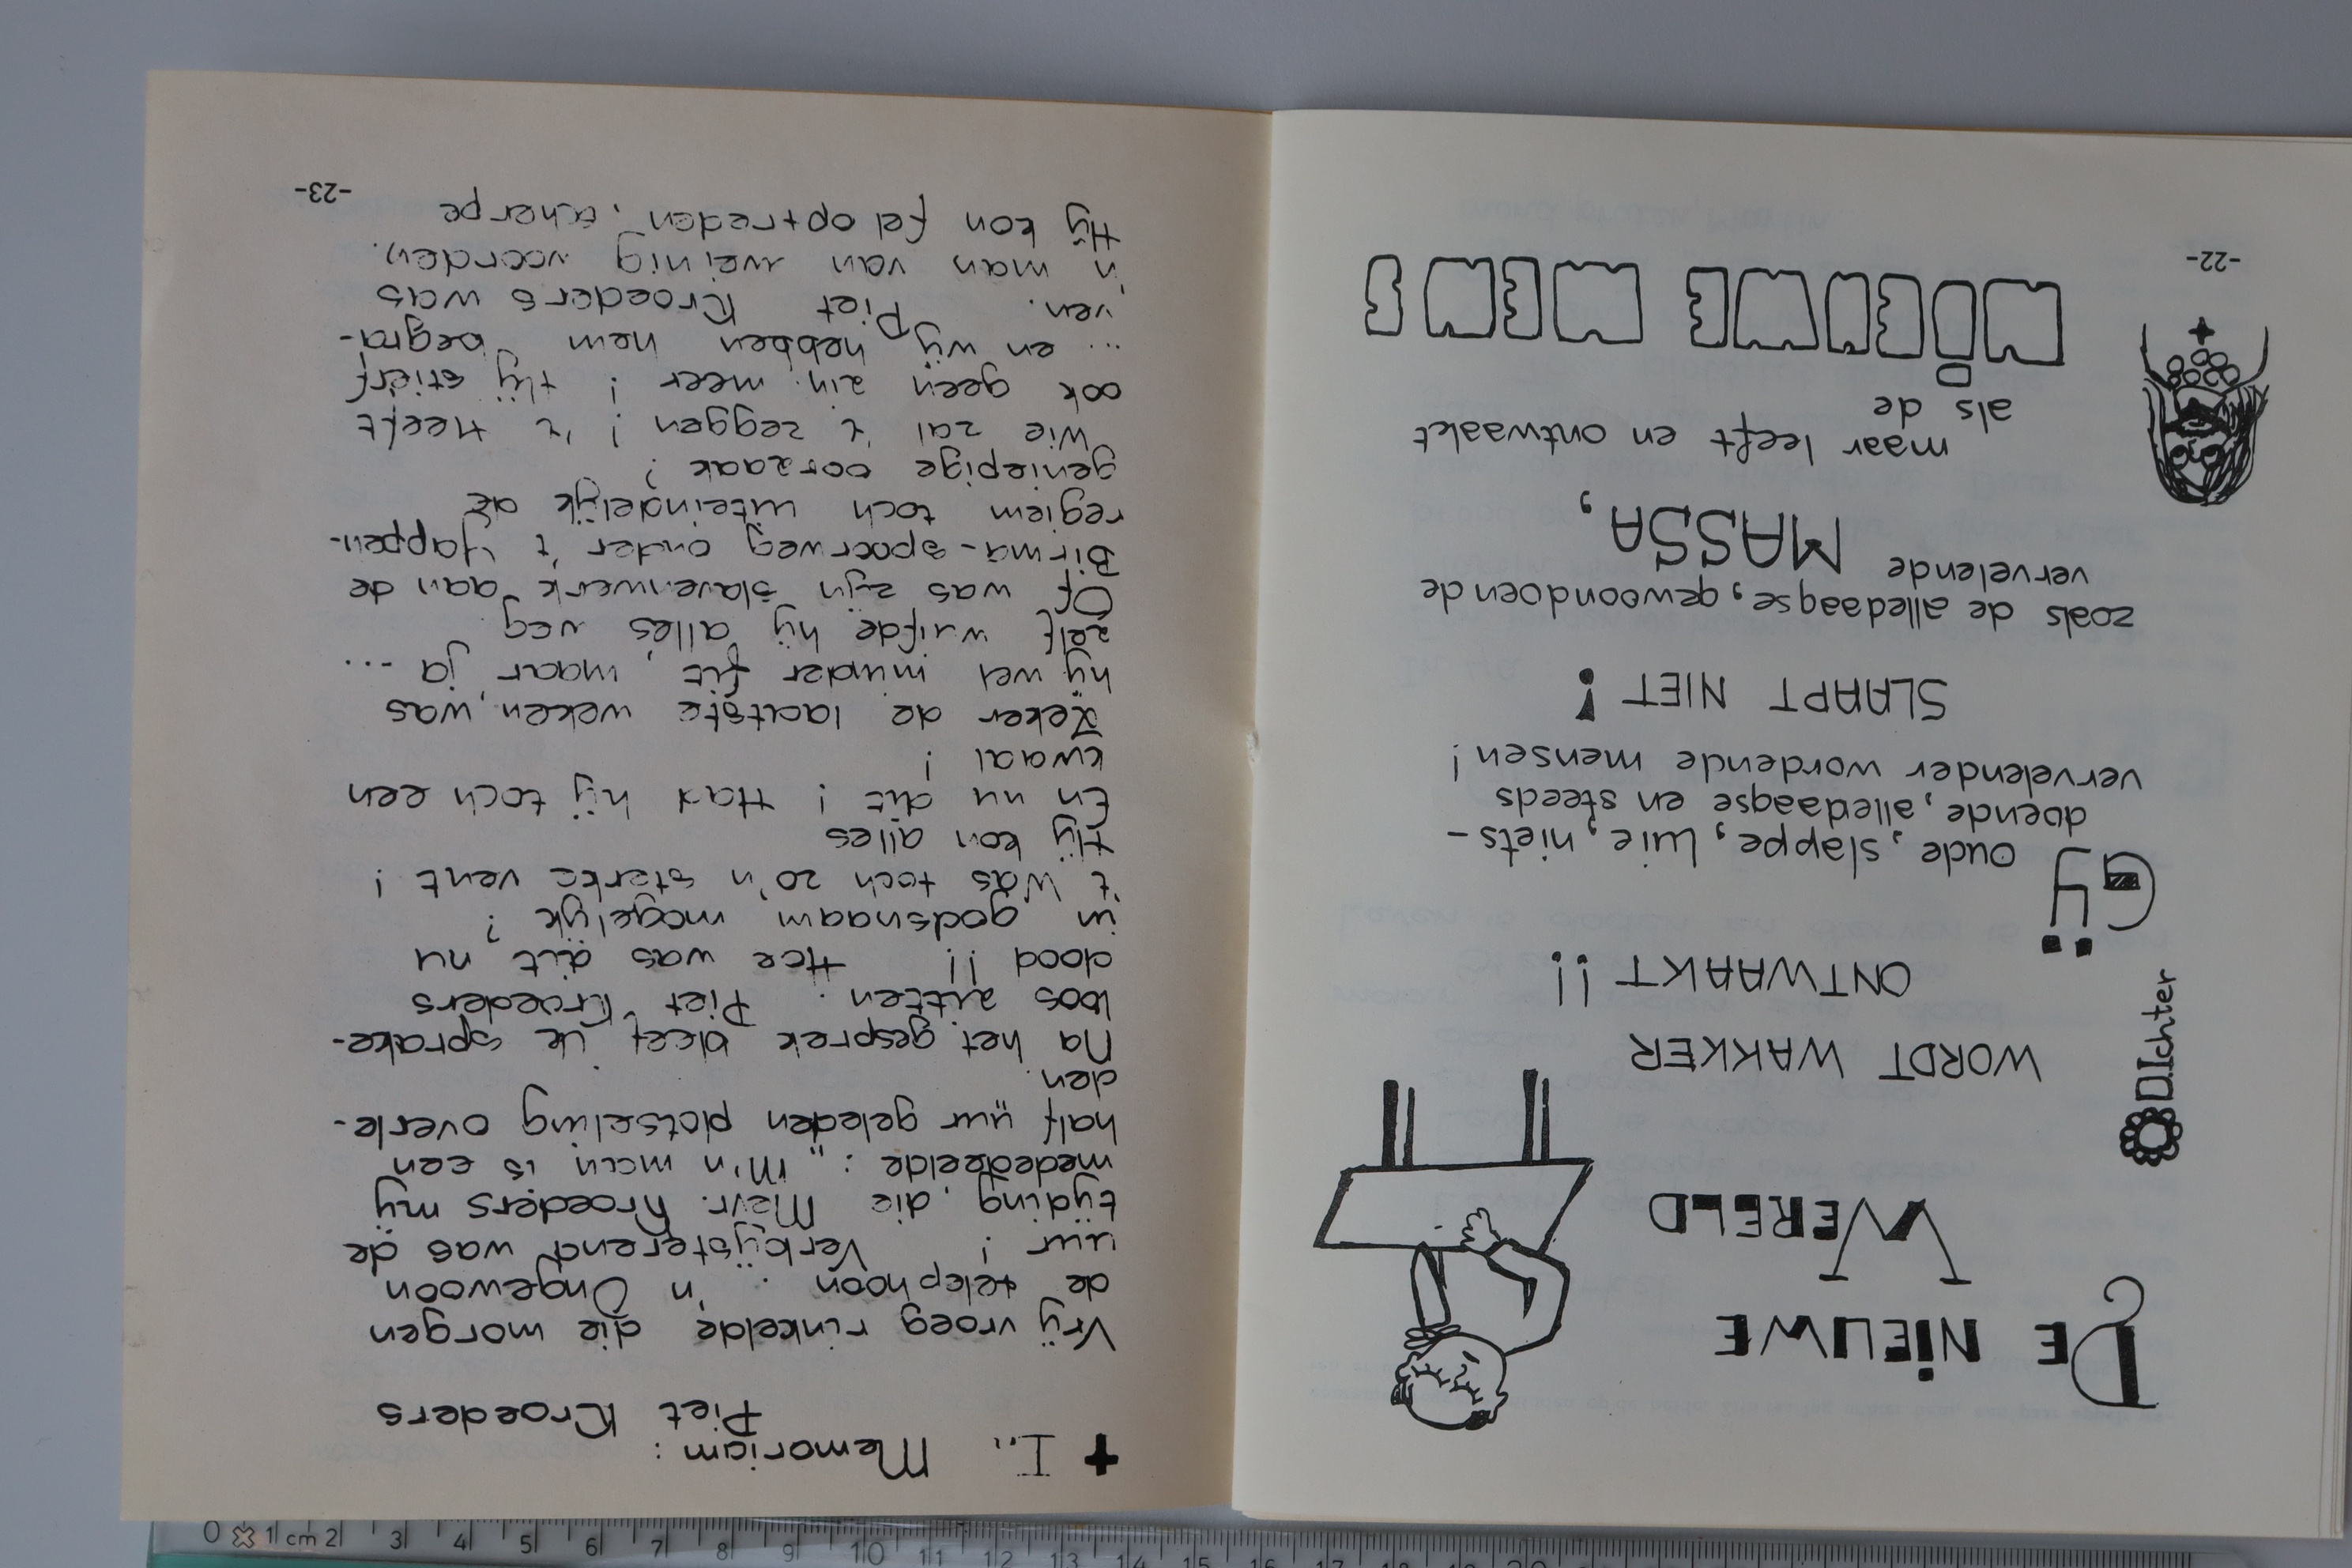 DE NIEUWE
WERELD
D.Ichter
WORDT WAKKER
ONTWAAKT !!
Gÿ oude, slappe, luie, niets-
doende, alledaagse en steeds
vervelender wordende mensen!
SLAAPT NIET !
zoals de alledaagse, gewoondoende
vervelende MASSA,
maar leeft en ontwaakt
als de
NIEUWE MENS
-22-
+ In Memoriam:
Piet Kroeders
Vrÿ vroeg rinkelde die morgen
de telephoon. 'n Ongewoon
uur! Verbÿsterend was de
tÿding, die Mevr. Kroeders mÿ
mededeelde: „M'n man is een
half uur geleden plotseling overle-
den.
Na het gesprek bleef ik sprake-
loos zitten. Piet Kroeders
dood!! Hoe was dit nu
in godsnaam mogelÿk?
't Was toch zo'n sterke vent!
Hÿ kon alles
En nu dit! Had hÿ toch een
kwaal!
Zeker de laatste weken, was
hÿ wel minder fit, maar ja ...
zelf wuifde hÿ alles weg.
Of was zÿn slavenwerk aan de
Birma-spoorweg onder 't Jappen-
regiem toch uiteindelÿk de
geniepige oorzaak?
Wie zal 't zeggen! 't Heeft
ook geen zin meer! Hÿ stierf
... en wÿ hebben hem begra-
ven. Piet Kroeders was
'n man van weinig woorden.
Hÿ kon fel optreden, scherpe
-23-
0 1 cm 2 3 4 5 6 7 8 9 10 11 12 13 14 15 16 17